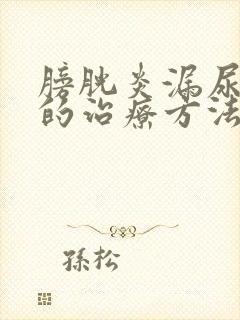 膀胱炎漏尿
的治療方法
孫松